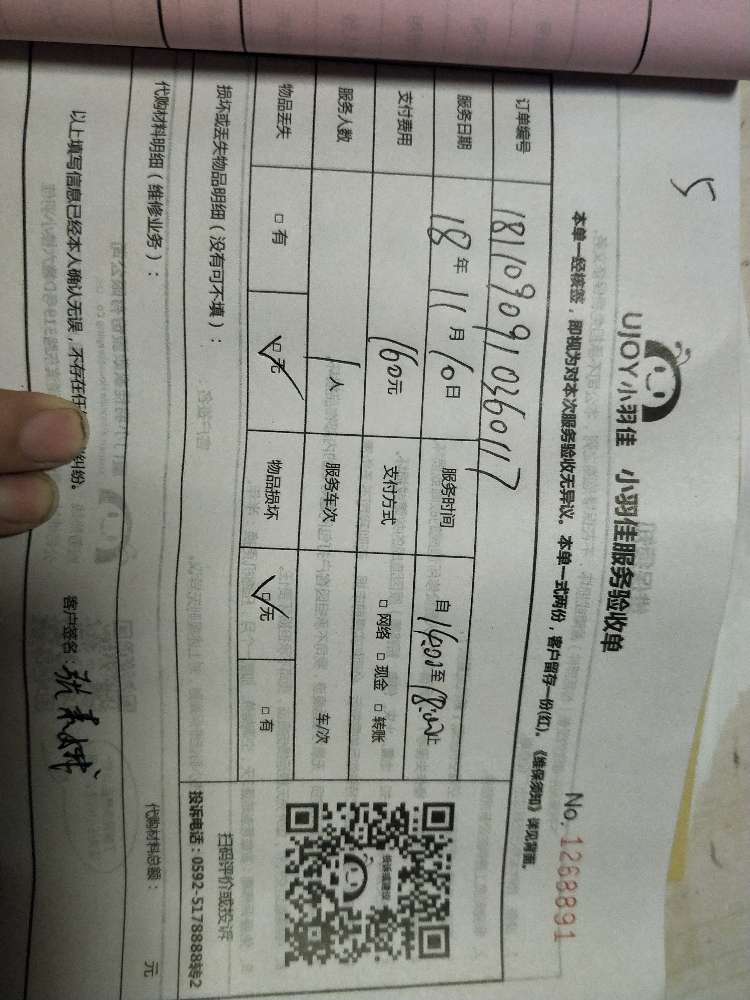 5
UJOY小羽佳 小羽佳服务验收单
No. 1268891
本单一经核签，即视为对本次服务验收无异议。本单一式两份，客户留存一份(红)。《维保须知》详见背面。
订单编号 1811090910360117
服务日期 18年11月10日 服务时间 自14:00至18:00止
支付费用 160元 支付方式 □网络 □现金 □转账
服务人数 1人 服务车次 车/次
物品丢失 □有 ☑无 物品损坏 ☑无 □有
损坏或丢失物品明细（没有可不填）：
扫码评价或投诉
投诉电话：0592-5178888转2
代购材料明细（维修业务）：
代购材料总额： 元
以上填写信息已经本人确认无误，不存在任 纠纷。 客户签名：张